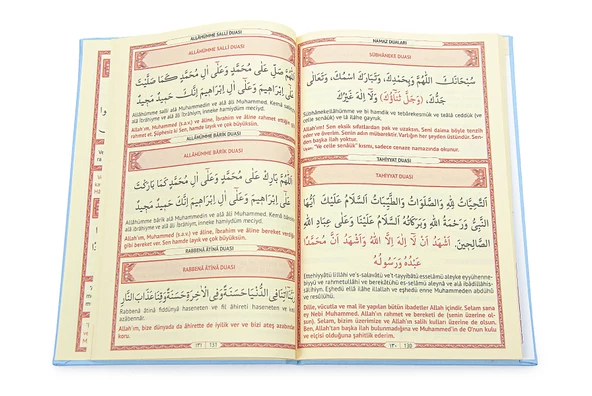 NAMAZ DUALARI
SÜBHÂNEKE DUASI
سُبْحَانَكَ اللّٰهُمَّ وَبِحَمْدِكَ، وَتَبَارَكَ اسْمُكَ، وَتَعَالٰى
جَدُّكَ، (وَجَلَّ ثَنَاؤُكَ) وَلَا اِلٰهَ غَيْرُكَ
Sübhânekellâhümme ve bi hamdik ve tebârekesmük ve teâlâ ceddük (ve
celle senâük) ve lâ ilâhe gayruk.
Allah'ım! Sen eksik sıfatlardan pak ve uzaksın. Seni daima böyle tenzih
eder ve överim. Senin adın mübarektir. Varlığın her şeyden üstündür. Sen-
den başka ilah yoktur.
"Ve celle senâük" kısmı, sadece cenaze namazında okunur.
TAHIYYAT DUASI
TAHIYYAT DUASI
اَلتَّحِيَّاتُ لِلّٰهِ وَالصَّلَوَاتُ وَالطَّيِّبَاتُ اَلسَّلَامُ عَلَيْكَ اَيُّهَا
النَّبِيُّ وَرَحْمَةُ اللّٰهِ وَبَرَكَاتُهُ اَلسَّلَامُ عَلَيْنَا وَعَلٰى عِبَادِ اللّٰهِ
الصَّالِحِينَ. اَشْهَدُ اَنْ لَا اِلٰهَ اِلَّا اللّٰهُ وَاَشْهَدُ اَنَّ مُحَمَّدًا
عَبْدُهُ وَرَسُولُهُ
Ettehiyyâtü lillâhi ve's-salavâtü ve't-tayyibâtü esselâmü aleyke eyyühenne-
biyyü ve rahmetullâhi ve berekâtühü es-selâmü aleynâ ve alâ ibâdillâhis-
sâlihîyn. Eşhedü ellâ ilâhe illallah ve eşhedü enne Muhammeden abdühü
ve resûlühü.
Dille, vücutla ve mal ile yapılan bütün ibadetler Allah içindir. Selam sana
ey Nebi Muhammed. Allah'ın rahmet ve bereketi de (senin üzerine ol-
sun). Selam, bizim üzerimize ve Allah'ın salih kulları üzerine de olsun.
Ben, Allah'tan başka ilah bulunmadığına ve Muhammed'in de O'nun kulu
ve elçisi olduğuna şahitlik ederim.
١٣٠ 130
ALLÂHÜMME SALLİ DUASI
ALLÂHÜMME SALLİ DUASI
اَللّٰهُمَّ صَلِّ عَلٰى مُحَمَّدٍ وَعَلٰى اٰلِ مُحَمَّدٍ كَمَا صَلَّيْتَ
عَلٰى اِبْرَاهِيمَ وَعَلٰى اٰلِ اِبْرَاهِيمَ اِنَّكَ حَمِيدٌ مَجِيدٌ
Allâhümme salli alâ Muhammedin ve alâ âli Muhammed. Kemâ salleyte
alâ İbrâhîyme ve alâ âli İbrâhîym, inneke hamîydüm meciyd.
Allah'ım, Muhammed (s.a.v.) ve âline, İbrahim ve âline rahmet ettiğin gibi
rahmet et. Şüphesiz ki Sen, hamde layık ve çok büyüksün.
ALLÂHÜMME BÂRİK DUASI
ALLÂHÜMME BÂRİK DUASI
اَللّٰهُمَّ بَارِكْ عَلٰى مُحَمَّدٍ وَعَلٰى اٰلِ مُحَمَّدٍ كَمَا بَارَكْتَ
عَلٰى اِبْرَاهِيمَ وَعَلٰى اٰلِ اِبْرَاهِيمَ اِنَّكَ حَمِيدٌ مَجِيدٌ
Allâhümme bârik alâ Muhammedin ve alâ âli Muhammed. Kemâ bârekte
alâ İbrâhîyme ve alâ âli İbrâhîym, inneke hamîydüm meciyd.
Allah'ım, Muhammed (s.a.v.) ve âline, İbrahim ve âline bereket verdiğin
gibi bereket ver. Sen hamde layık ve çok büyüksün.
RABBENÂ ÂTİNÂ DUASI
RABBENÂ ÂTİNÂ DUASI
رَبَّنَا اٰتِنَا فِي الدُّنْيَا حَسَنَةً وَفِي الْاٰخِرَةِ حَسَنَةً وَقِنَا عَذَابَ النَّارِ
Rabbenâ âtinâ fiddünyâ haseneten ve fil âhireti haseneten ve kınâ
azâbennâr.
Allah'ım, bize dünyada da âhirette de iyilik ver ve bizi ateş azabından
koru.
١٣١ 131